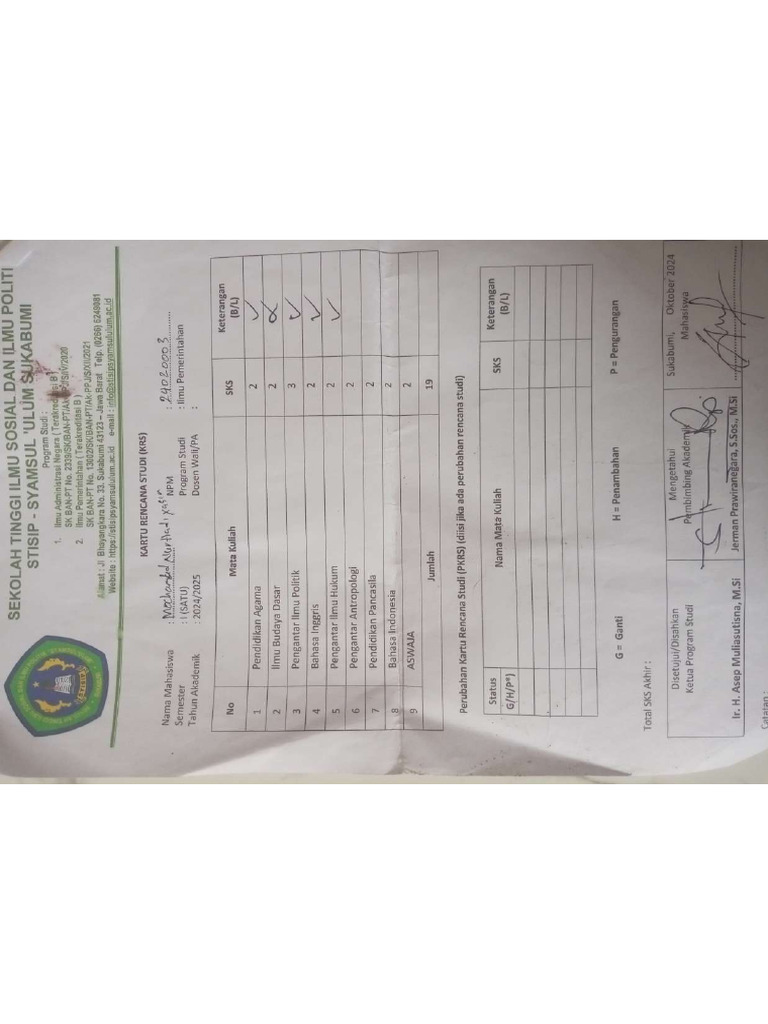 SEKOLAH TINGGI ILMU SOSIAL DAN ILMU POLITI
STISIP - SYAMSUL 'ULUM SUKABUMI
Program Studi :
1. Ilmu Administrasi Negara ( Terakreditasi B )
SK BAN-PT No. 2339/SK/BAN-PT/Ak-PPJ/S/IV/2020
2. Ilmu Pemerintahan ( Terakreditasi B )
SK BAN-PT No. 13002/SK/BAN-PT/Ak-PPJ/S/XII/2021
Alamat : Jl Bhayangkara No. 33, Sukabumi 43123 – Jawa Barat Telp. (0266) 6248081
Website : https://stisipsyamsululum.ac.id e-mail : info@stisipsyamsululum.ac.id
KARTU RENCANA STUDI (KRS)
Nama Mahasiswa : Mochamad Nurhadi Yasin NPM : 24020003
Semester : I (SATU) Program Studi : Ilmu Pemerintahan
Tahun Akademik : 2024/2025 Dosen Wali/PA :
No Mata Kuliah SKS Keterangan (B/L)
1 Pendidikan Agama 2
2 Ilmu Budaya Dasar 2
3 Pengantar Ilmu Politik 3
4 Bahasa Inggris 2
5 Pengantar Ilmu Hukum 2
6 Pengantar Antropologi 2
7 Pendidikan Pancasila 2
8 Bahasa Indonesia 2
9 ASWAJA 2
Jumlah 19
Perubahan Kartu Rencana Studi (PKRS) (diisi jika ada perubahan rencana studi)
Status G/H/P*) Nama Mata Kuliah SKS Keterangan (B/L)
G = Ganti H = Penambahan P = Pengurangan
Total SKS Akhir :
Disetujui/Disahkan Mengetahui Sukabumi, Oktober 2024
Ketua Program Studi Pembimbing Akademik Mahasiswa
Ir. H. Asep Muliasutisna, M.Si Jerman Prawiranegara, S.Sos., M.Si
Catatan :